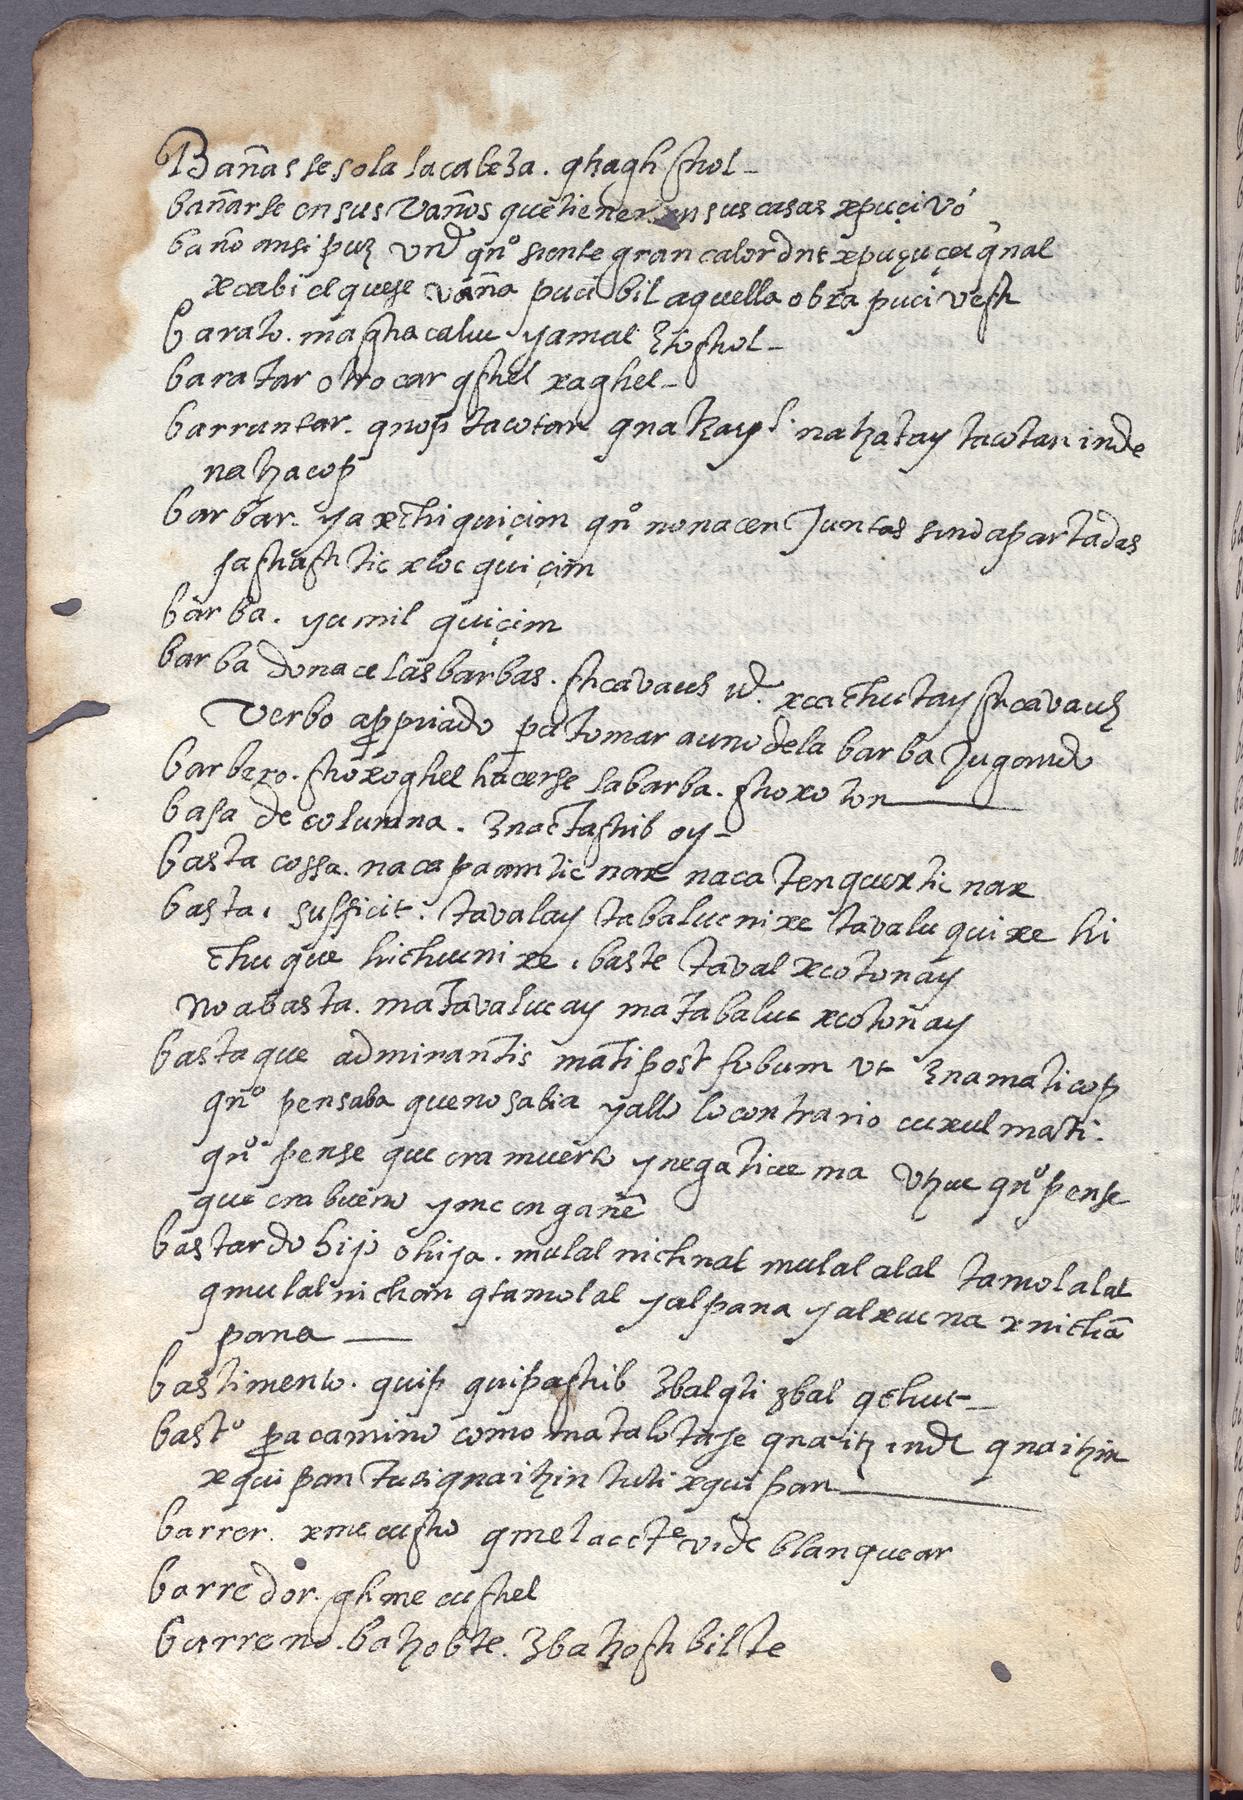 Bañasse sola la cabeza. qhagh shol_
bañarse en sus vaños que tienen en sus casas xpuçivó
baño ansi puz vnd̃ qñº siente gran calor dnt xpuçuçet q̃nal
xcabi el quese vaña puci bil aquella obra puci vesh
barato. magtha caluc yamal ztoshol_
baratar otro car qshel xaghel_
barruntar. qnop tacotan qnahay l. nahatay tacotan inde
nahacop
barbar. yaxchi quiçim qñº no nacen Juntas sino apartadas
sashash tic xloc quiçim
barba. yamil quiçim
barba do nace las barbas. shcavauz id̃. xcachutay shcavauz
Verbo appriado pa tomar a uno dela barba Jugando
barbero. shoxoghel hacerse la barba. shoxo ton
basa de columna. znactashib oy_
basta cossa. naca paamtic nax naca tenquextic nax
basta, sufficit. tavalay tabaluc nixe tavaluquixe hi
chuque hichucnixe. baste taval xcotonay
No abasta. matavalucay matabaluc xcotonay
basta que admirantis mati post fobum vt znamaticop
qñº pensaba que no sabia yallo lo contrario cuxul mati.
qñº pense que era muerto y negatiue ma vtzuc qñº pense
que era bueno y me engañé
bastardo hijo o hija. mulal nichnal mulal alal tamolalal
qmulal nichan qtamolal yalpana yalxucna xnichã
pana
bastimento. quip quipashib zbalqti zbal qchuc_
bastº pa camino como matalotaje qnaitz inde qnaihin
xquipan tusi qnaihin tuti xquipan
barrer. xmecusho qmelacete vide blanquear
barredor. ghmecushel
barreno. bahobte. zbahosh bilte